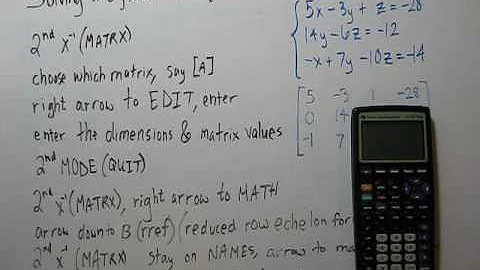 Solving
2nd x⁻¹ (MATRX)
choose which matrix, say [A]
right arrow to EDIT, enter
enter the dimensions & matrix values
2nd MODE (QUIT)
2nd x⁻¹ (MATRX), right arrow to MATH
arrow down to B (rref) (reduced row echelon for
2nd x⁻¹ (MATRX stay on NAMES, arrow to ma
5x - 3y + z = -28
14y - 6z = -12
-x + 7y - 10z = -14
5 -3 1 -28
0 14
-1 7